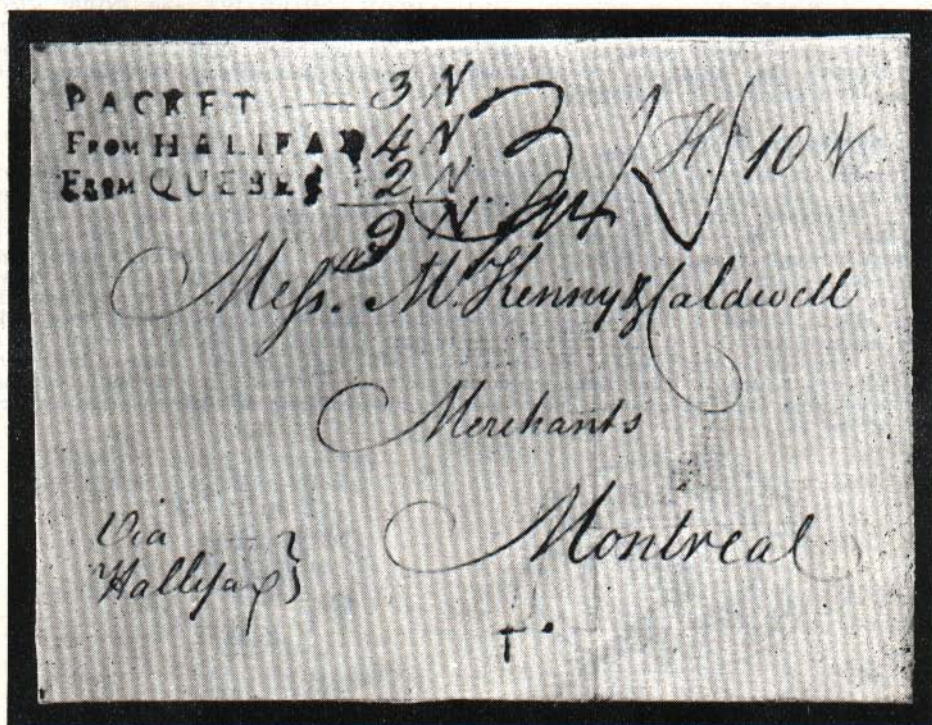 PACKET — 3 N
From HALIFAX 4 N
From QUEBEC 2 N
9 N
H 10 N
Messrs. McKenny & Caldwell
Merchants
Montreal
Via
Hallifax